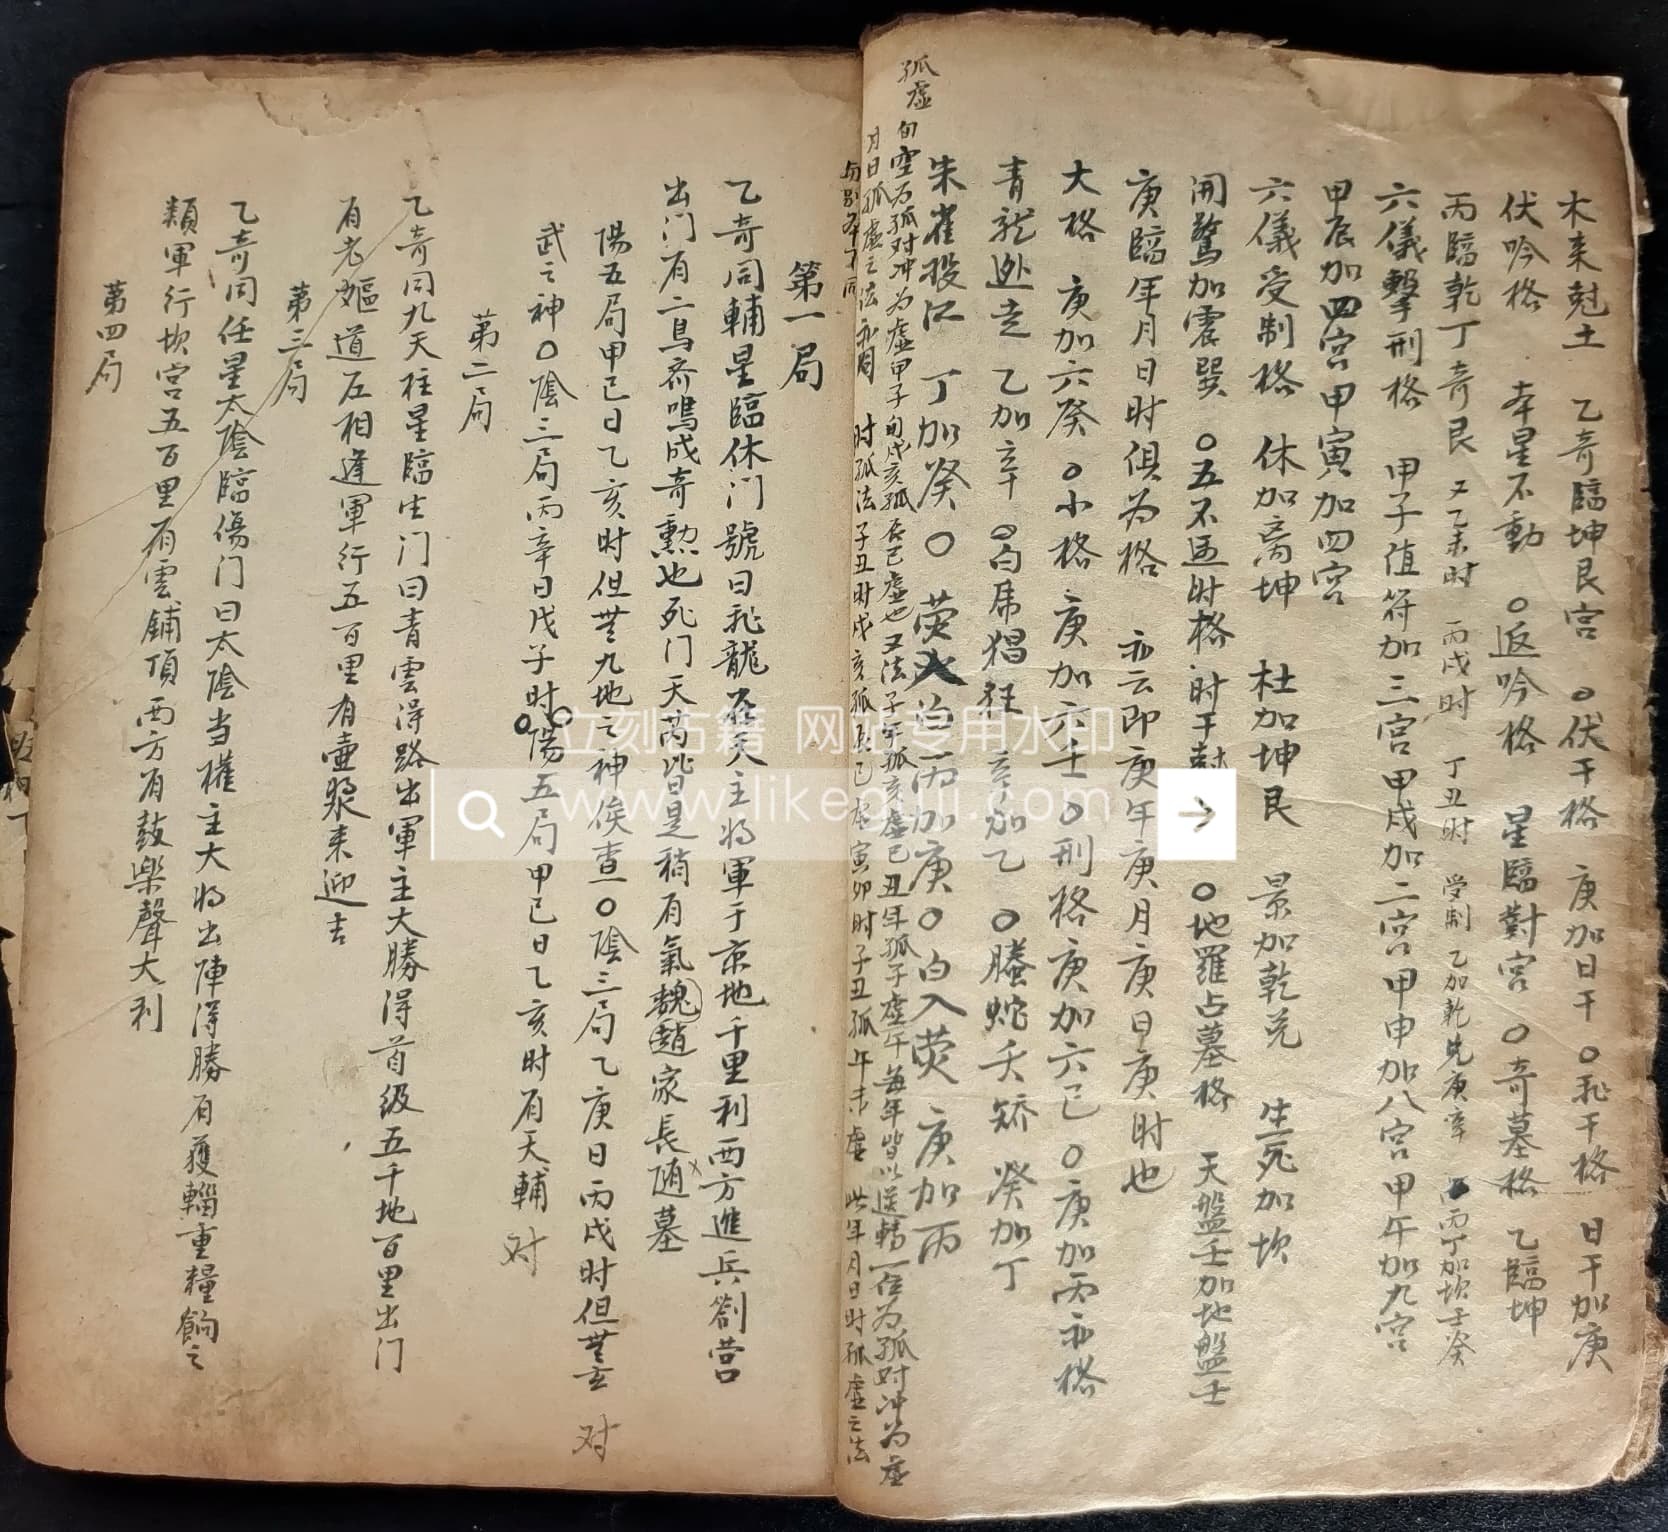 木来尅土　乙奇臨坤艮宫　○伏干格　庚加日干　○飛干格　日干加庚
伏吟格　本星不動　○返吟格　星臨對宮　○奇墓格　乙臨坤
丙臨乾丁奇艮　又乙未时　丙戌时　丁丑时　受制　乙加乾兑庚辛　丙丁加坎壬癸
六儀擊刑格　甲子值符加三宮甲戌加二宮甲申加八宮甲午加九宮
甲辰加四宮甲寅加四宮
六儀受制格　休加离坤　杜加坤艮　景加乾兑　生死加坎
開驚加震巽　○五不遇时格时干尅　○地羅占墓格　天盤壬加地盤壬
庚臨年月日时俱为格　亦云即庚年庚月庚日庚时也
大格　庚加六癸　○小格　庚加六壬　○刑格庚加六己　○庚加丙亦格
青龍逃走　乙加辛　○白虎猖狂　辛加乙　○螣蛇夭矫　癸加丁
朱雀投江　丁加癸　○　荧火　丙加庚　○白入荧　庚加丙
孤虚　旬空为孤对冲为虚甲子旬戌亥孤辰巳虚也又法子年孤亥虚巳丑年孤子虚午每年皆以送轉一位为孤对冲为虚
月日孤虚之法亦同　时孤法　子丑时戌亥孤辰巳虚寅卯时子丑孤午未虚　此年月日时孤虚之法
第一局
乙奇同輔星臨休门號曰飛龍在天主将軍于京地千里利西方進兵劄营
出门有二鳥齐鳴成奇勲也死门天芮皆是稍有氣魏趙家長随墓
陽五局甲己日乙亥时但無九地之神候查○陰三局乙庚日丙戌时但無玄　对
武之神○陰三局丙辛日戊子时陽五局甲己日乙亥时有天輔　对
第二局
乙奇同九天柱星臨生门曰青雲得路出軍主大勝得首级五千地百里出门
有老嫗道左相逢軍行五百里有壷漿来迎吉
第三局
乙奇同任星太陰臨傷门曰太陰当權主大将出陣得勝有獲輜重糧餉之
類軍行坎宫五百里有雲鋪頂西方有鼓樂聲大利
第四局
立刻古籍 网站专用水印
www.likeguji.com